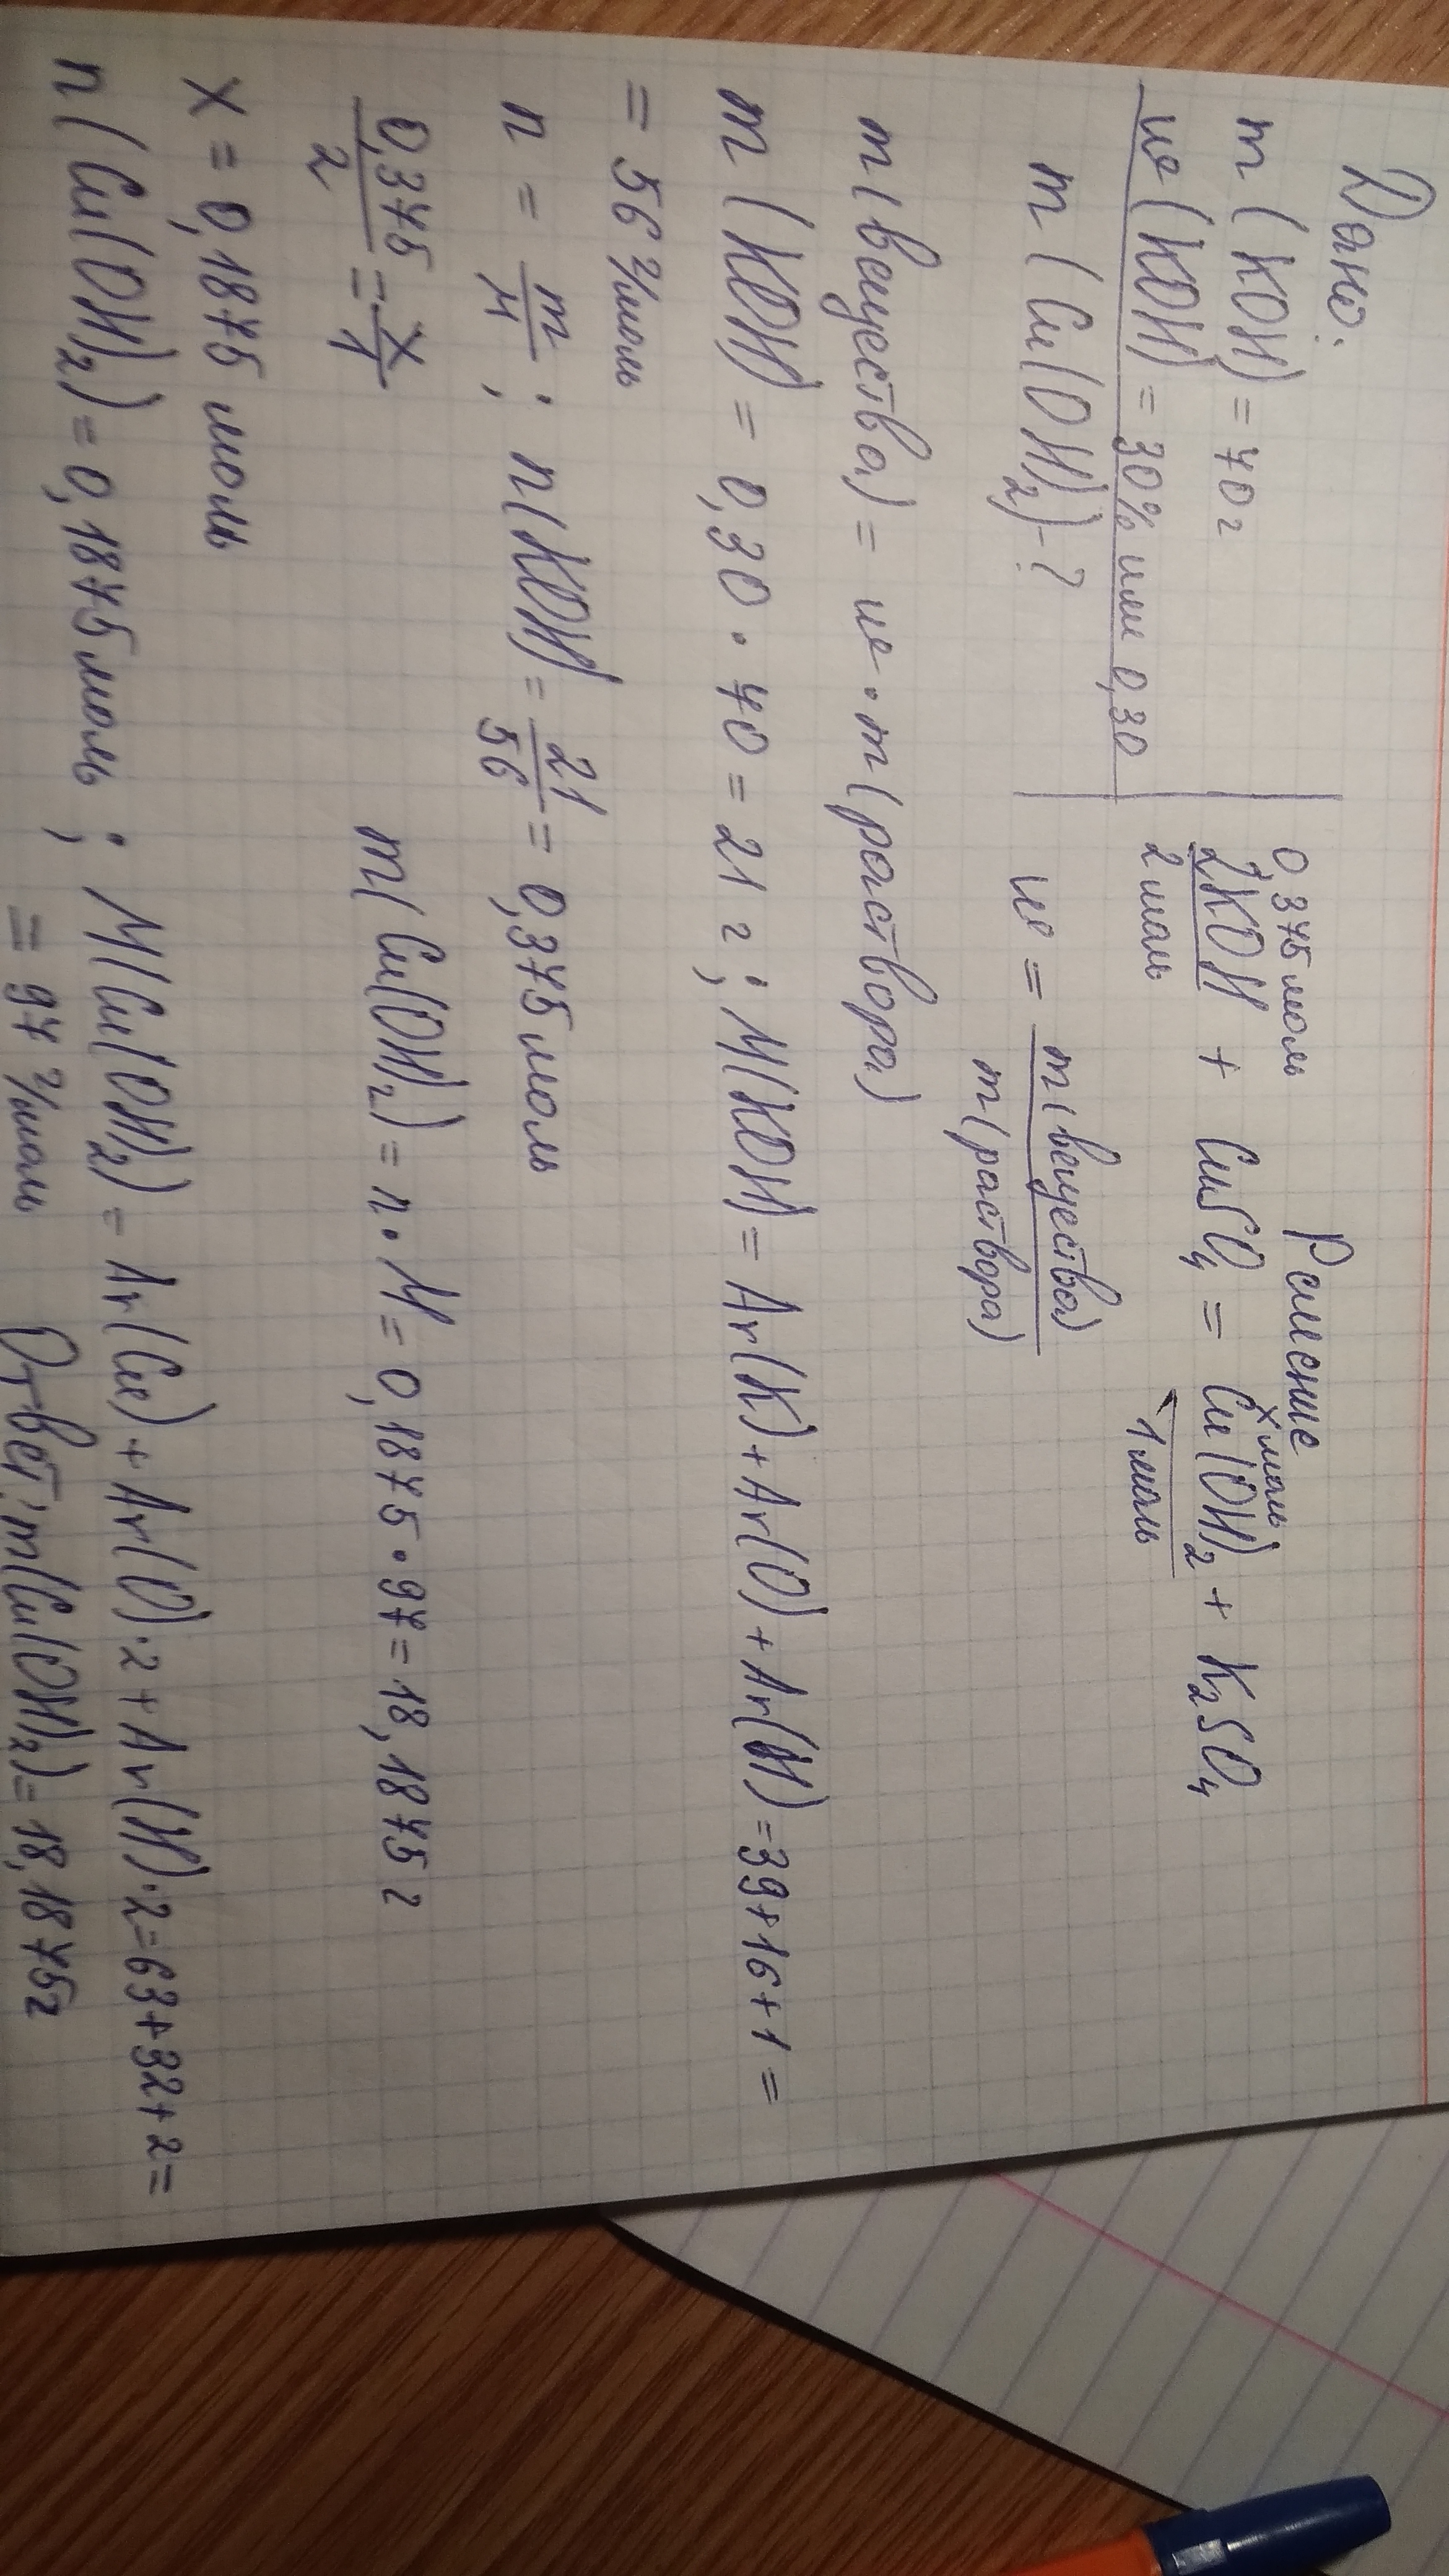 Дано:
m (KOH) = 70 г
ω (KOH) = 30% или 0,30
m (Cu(OH)2) - ?
Решение
0,375 моль x моль
2KOH + CuSO4 = Cu(OH)2 + K2SO4
2 моль 1 моль
ω = m(вещества) / m(раствора)
m(вещества) = ω · m(раствора)
m (KOH) = 0,30 · 70 = 21 г ; M(KOH) = Ar(K) + Ar(O) + Ar(H) = 39+16+1 =
= 56 г/моль
n = m/M ; n(KOH) = 21/56 = 0,375 моль
0,375/2 = x/1 m(Cu(OH)2) = n · M = 0,1875 · 97 = 18,1875 г
x = 0,1875 моль
n (Cu(OH)2) = 0,1875 моль ; M(Cu(OH)2) = Ar(Cu) + Ar(O)·2 + Ar(H)·2 = 63+32+2 =
= 97 г/моль Ответ: m(Cu(OH)2) = 18,1875г